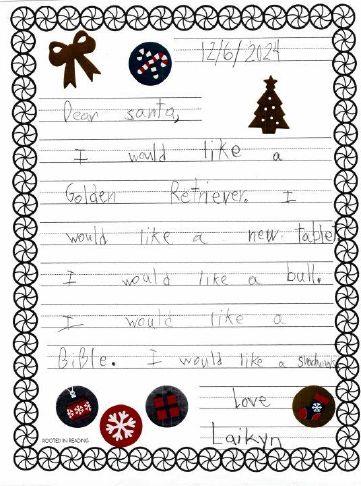 12/6/2024
Dear santa,
I would like a
Golden Retriever. I
would like a new tablet.
I would like a bull.
I would like a
Bible. I would like a
Love
Laikyn
ROOTED IN READING